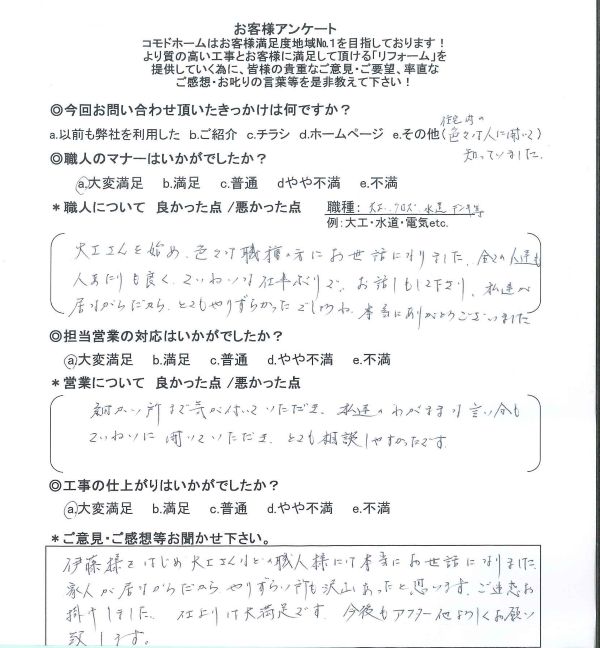 お客様アンケート
コモドホームはお客様満足度地域№1を目指しております！
より質の高い工事とお客様に満足して頂ける「リフォーム」を
提供していく為に、皆様の貴重なご意見・ご要望、率直な
ご感想・お叱りの言葉等を是非教えて下さい！
◎今回お問い合わせ頂いたきっかけは何ですか？
a.以前も弊社を利用した b.ご紹介 c.チラシ d.ホームページ e.その他(色々な人に聞いて)
知っていました。
◎職人のマナーはいかがでしたか？
a.大変満足 b.満足 c.普通 dやや不満 e.不満
＊職人について 良かった点 /悪かった点 職種： 大工、クロス 水道 アンテナ等
例：大工・水道・電気etc.
大工さんを始め、色々な職種の方にお世話になりました。全ての人達も
人あたりも良く、ていねいな仕事ぶりで、お話しもして下さり、私達が
居ながらだから、とてもやりずらかったでしょうね。本当にありがとうございました
◎担当営業の対応はいかがでしたか？
a.大変満足 b.満足 c.普通 d.やや不満 e.不満
＊営業について 良かった点 /悪かった点
細かい所まで気が付いていただき、私達のわがままな言い分も
ていねいに聞いていただき、とても相談しやすかったです。
◎工事の仕上がりはいかがでしたか？
a.大変満足 b.満足 c.普通 d.やや不満 e.不満
＊ご意見・ご感想等お聞かせ下さい。
伊藤様をはじめ大工さんなどの職人様には本当にお世話になりました。
家人が居ながらだからやりずらい所も沢山あったと思います。ご迷惑お
掛けしました。仕上りは大満足です。今後もアフター他よろしくお願い
致します。